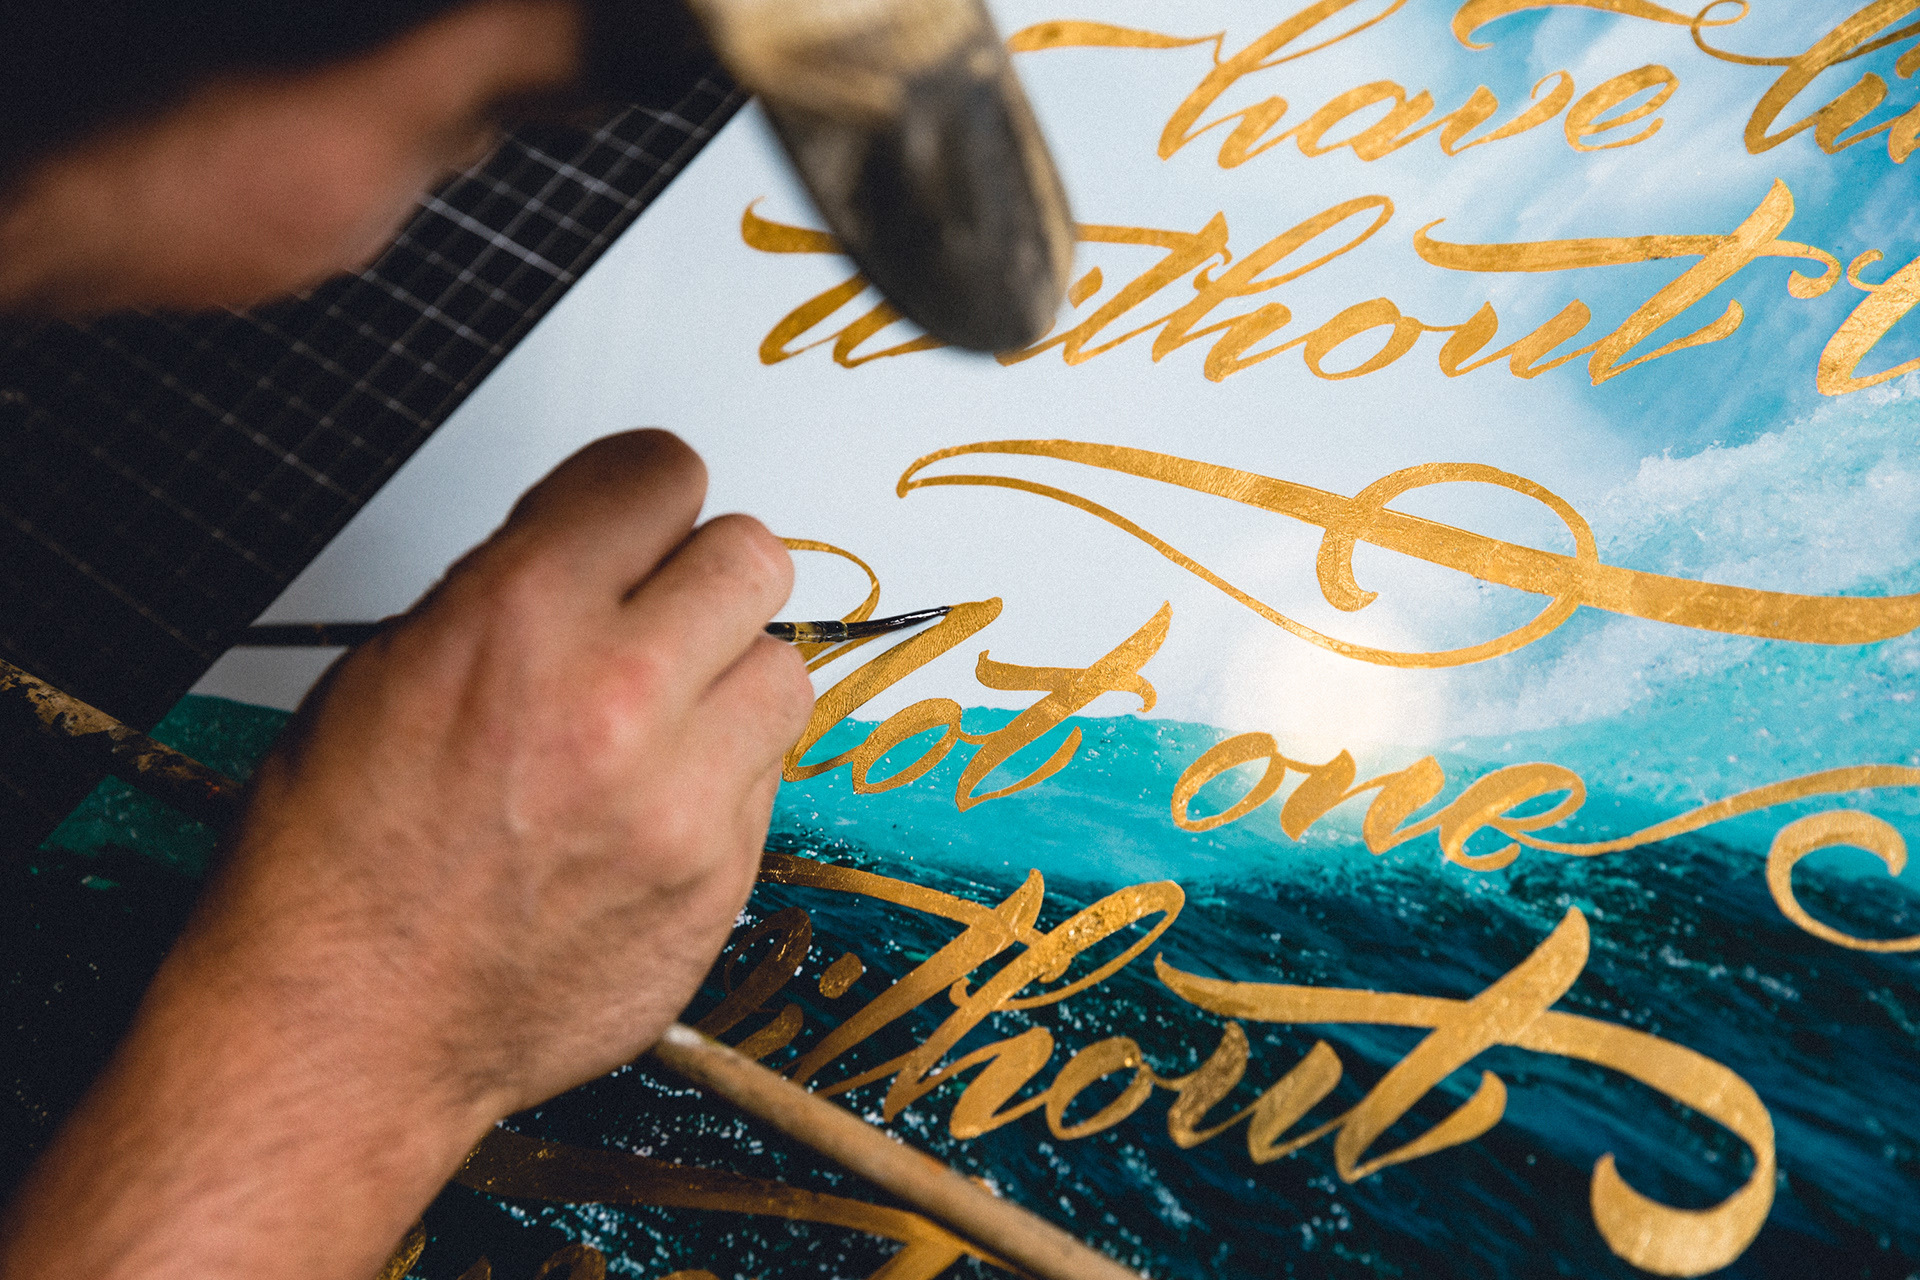 have
without
Not one
without